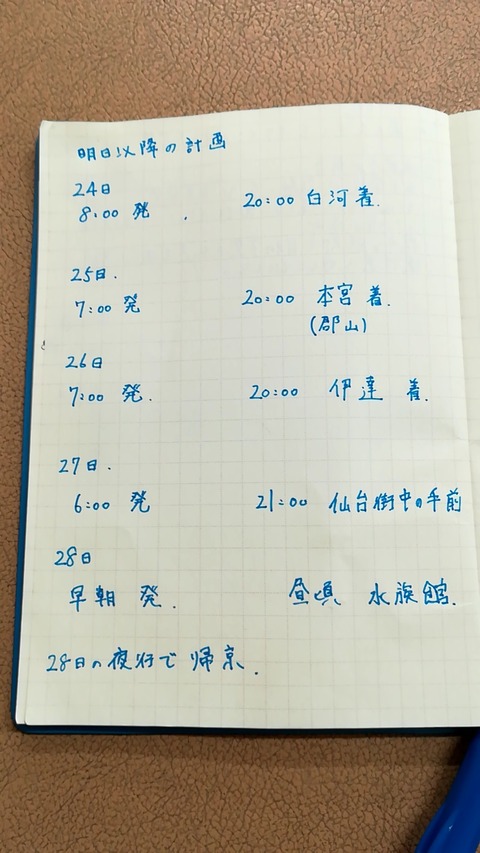 明日以降の計画
24日
8:00 発 20:00 白河着.
25日.
7:00 発 20:00 本宮 着.
(郡山)
26日
7:00 発. 20:00 伊達 着.
27日.
6:00 発 21:00 仙台街中の手前
28日
早朝 発. 昼頃 水族館.
28日の夜行で 帰京.